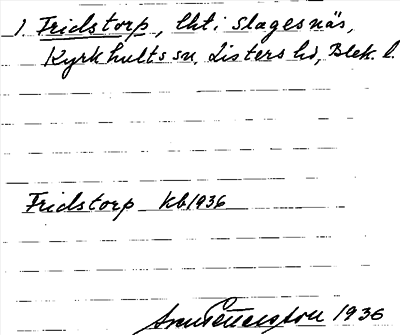 1. Fridstorp, lht. i Slagesnäs,
Kyrkhults sn, Listers hd, Blek. l.
Fridstorp Kb 1936
1936